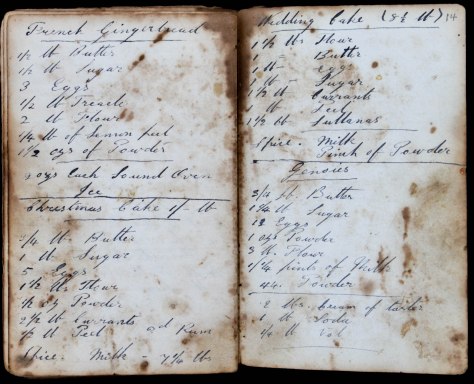 French Gingerbread
1/2 lb Butter
1/2 lb Sugar
3 Eggs
1/2 lb Treacle
2 lb Flour
1/4 lb of Lemon peel
1 1/2 ozs of Powder
2 ozs Each Sound Oven
Ice
Christmas Cake 1/- lb
3/4 lb Butter
1 lb Sugar
5 Eggs
1 1/2 lb Flour
1/2 oz Powder
2 1/2 lb Currants
1/2 lb Peel
Rum
Spice. Milk - 7 1/4 lbs
Wedding Cake (8 1/2 lb) 14
1 1/2 lbs Flour
1 lb Butter
1 lb Eggs
Sugar
1 1/2 lb Currants
1 lb Peel
1 1/2 lb Sultanas
Spice. Milk
Pinch of Powder
Genoies
Butter
lb Sugar
12 Eggs
1 ozs Powder
3 lb Flour
pints of Milk
Powder
2 lbs. cream of tarter
1 lb Soda